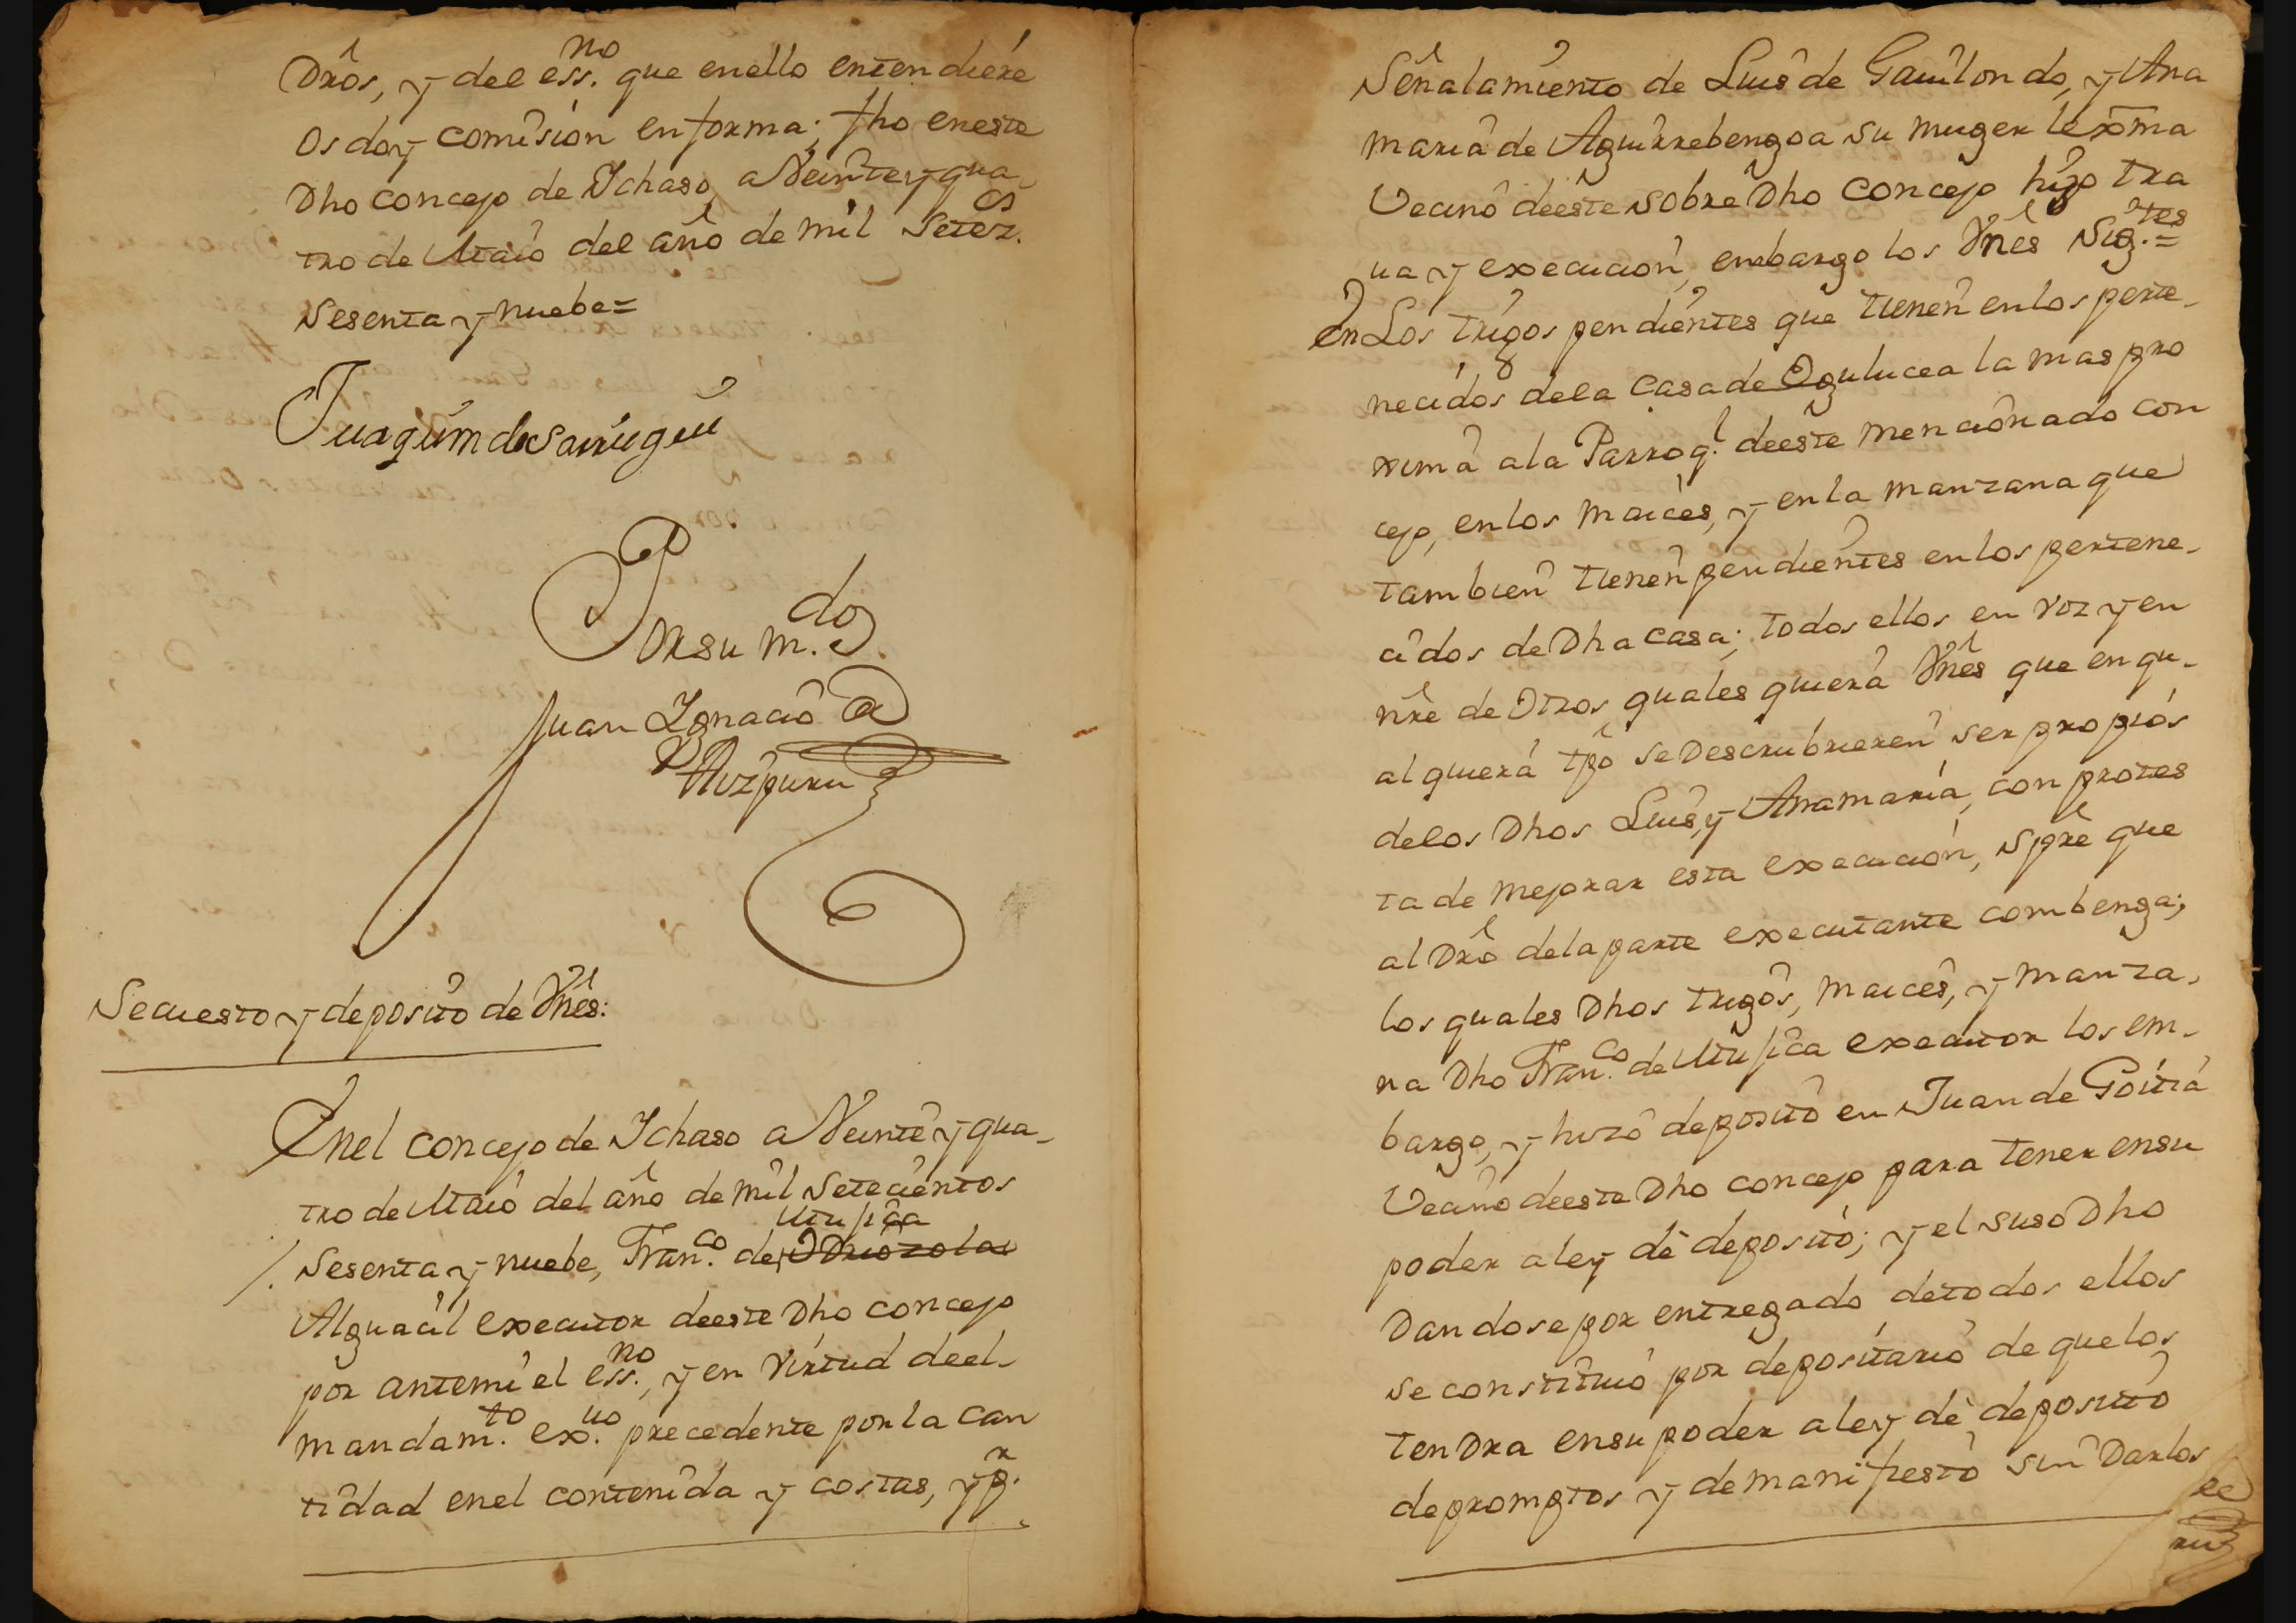 Dr̃os, y del ess.no que en ello entendiere
os doy comision en forma; fho en este
Dho concejo de Ichaso a Veinte y qua-
tro de Maio del año de mil Setez.os
Sesenta y nuebe=
Juaquim de Sarrugui
Por su m.do
Juan Ignacio de
Aizpuru
Secuesto y deposito de Vñes:
En el concejo de Ichaso a Veinte y qua-
tro de Maio del año de mil Setecientos
Mujica
Sesenta y nuebe, Fran.co de Odriozola
Alguacil executor de este Dho concejo
por ante mi el ess.no, y en virtud de el-
mandam.to ex.uo precedente por la can
tidad en el contenida y costas, y p.r
Señalamiento de Luis de Gauilondo, y Ana
maria de Aguirrebengoa su muger lexma
Vecino de este sobre Dho concejo hizo tra
ua y execucion, embargo los Vñes Sig.tes=
En Los trigos pendientes que tienen en los perte-
necidos de la casa de Ogulucea la mas pro
xima a la Parroq.l de este mencionado con
cejo, en los maices, y en la manzana que
tambien tienen pendientes en los pertene-
cidos de Dha casa; todos ellos en voz y en
nr̃e de otros quales quiera Vñes que en qu-
alquiera tpo se Descrubrieren ser propios
de los Dhos Luis, y Ana maria, con protes
ta de mejorar esta execucion, spr̃e que
al Dr̃o de la parte executante combenga;
los quales Dhos trigos, maices, y manza-
na Dho Fran.co de Mujica executor los em-
bargo, y hizo deposito en Juan de Goitia
Vecino de este Dho concejo para tener en su
poder a ley de deposito; y el suso Dho
Dandose por entregado de todos ellos
se constituio por depositario de que los
tenDra en su poder a ley de deposito
de promptos y de manifiesto sin Darlos